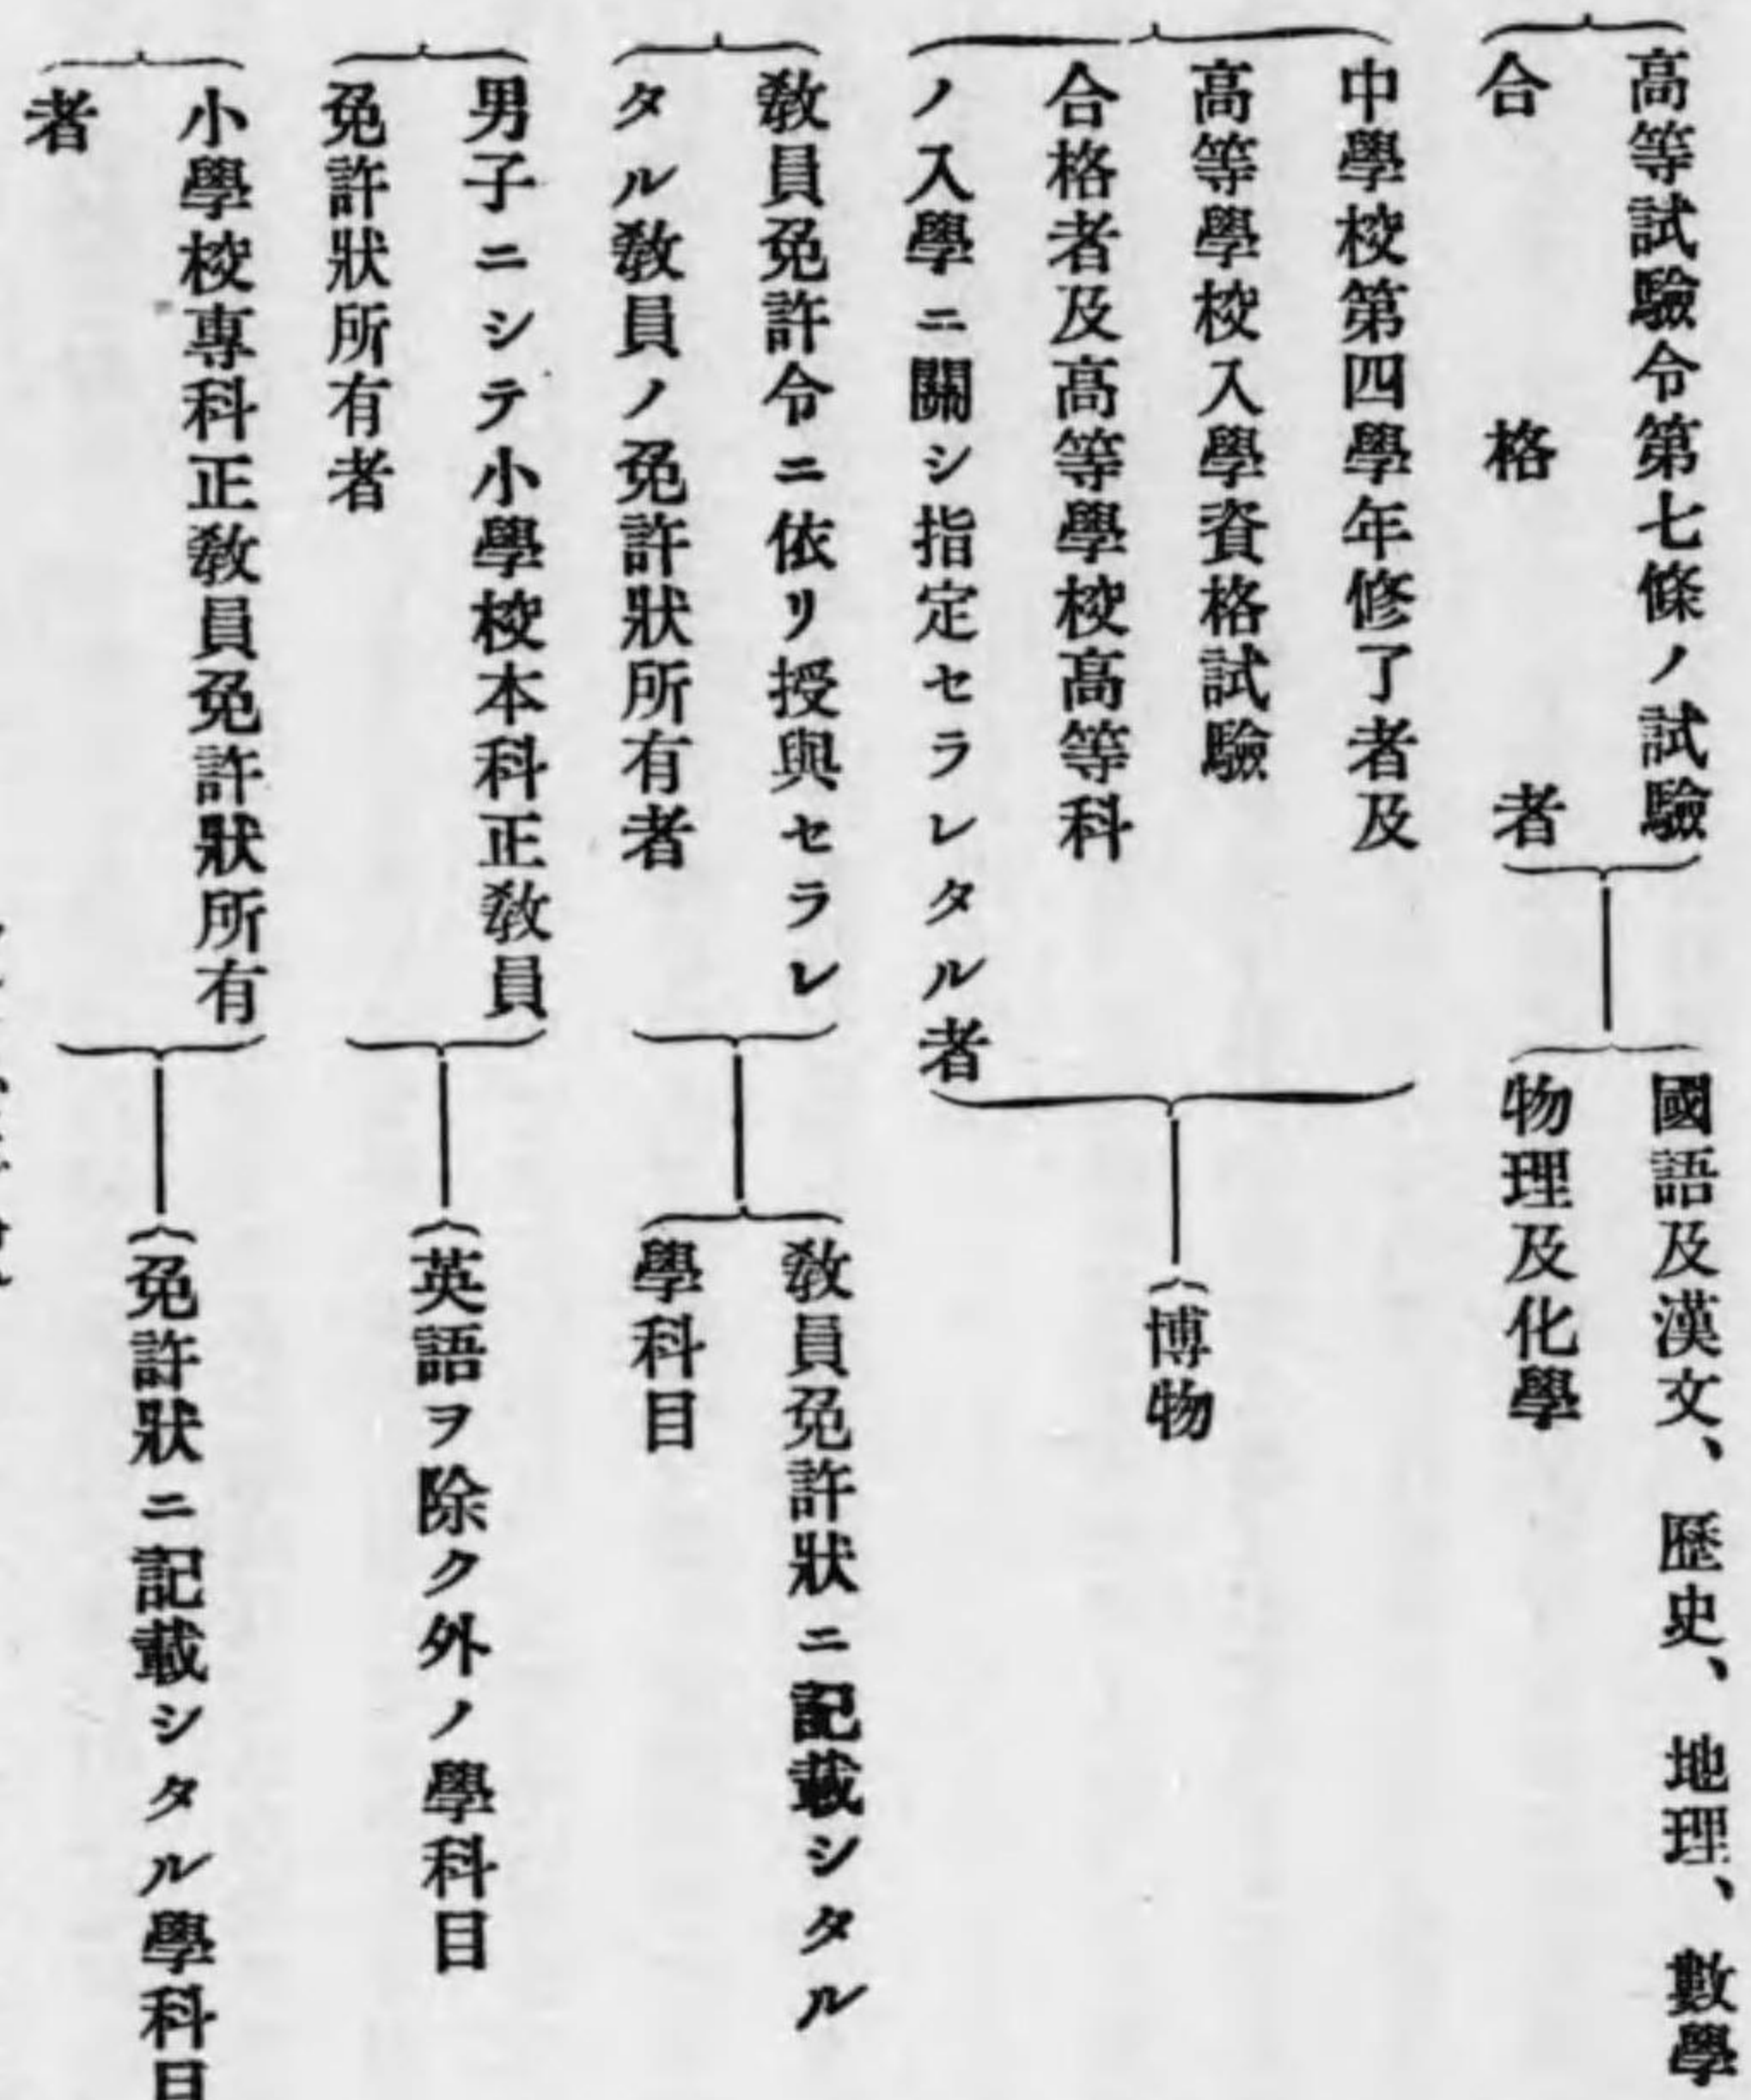 高等試驗令第七條ノ試驗
合格者
國語及漢文、歷史、地理、數學
物理及化學
中學校第四學年修了者及
高等學校入學資格試驗
合格者及高等學校高等科
ノ入學ニ關シ指定セラレタル者
博物
敎員免許令ニ依リ授與セラレ
タル敎員ノ免許狀所有者
敎員免許狀ニ記載シタル
學科目
男子ニシテ小學校本科正敎員
免許狀所有者
英語ヲ除ク外ノ學科目
小學校專科正敎員免許狀所有
者
免許狀ニ記載シタル學科目